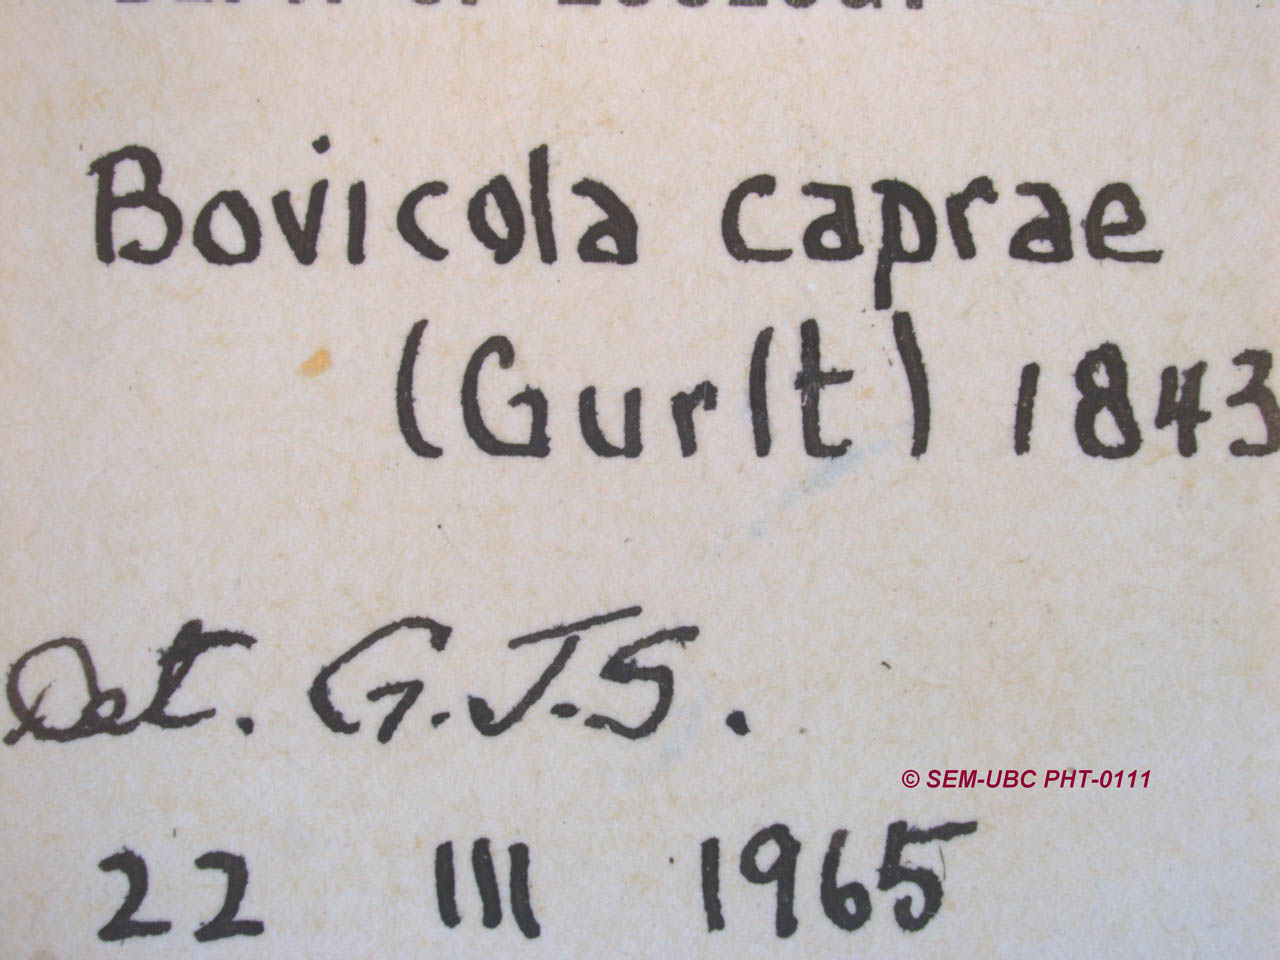 DEPT. OF ZOOLOGY
Bovicola caprae
(Gurlt) 1843
Det. G.J.S.
© SEM-UBC PHT-0111
22 III 1965